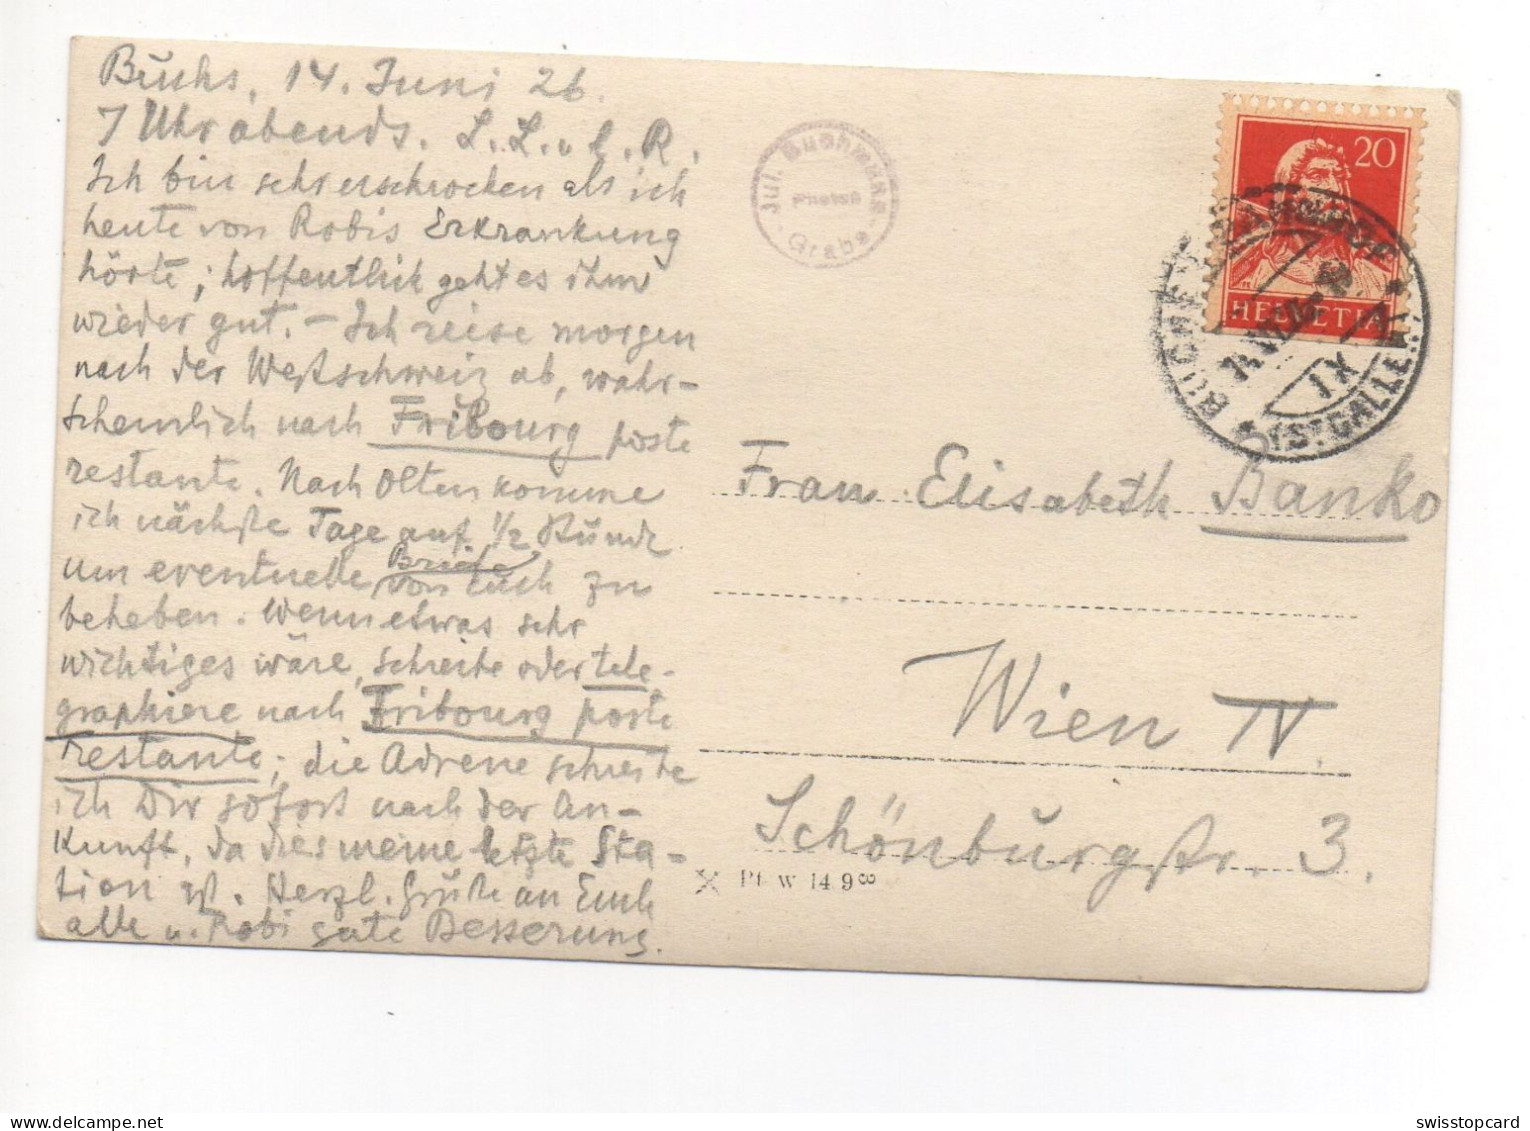 Buchs, 14. Juni 26.
7 Uhr abends. L. L. u. l. R.
Ich bin sehr erschrocken als ich
heute von Robis Erkrankung
hörte; hoffentlich geht es ihm
wieder gut. – Ich reise morgen
nach der Westschweiz ab, wahr-
scheinlich nach Fribourg poste
restante. Nach Olten komme
ich nächste Tage auf 1/2 Stunde
um eventuelle Briefe von Euch zu
beheben. Wenn etwas sehr
wichtiges wäre, schreibe oder tele-
graphiere nach Fribourg poste
restante; die Adresse schreibe
ich Dir sofort nach der An-
kunft, da dies meine letzte Sta-
tion ist. Herzl. Grüße an Euch
alle u. Robi gute Besserung.
Jul. Buchmann
Grabs
20
HELVETIA
BUCHS BAHNHOF
(ST. GALLEN)
14.VI.26
IX
Frau Elisabeth Banko
Wien IV.
Schönburgstr. 3.
swisstopcard